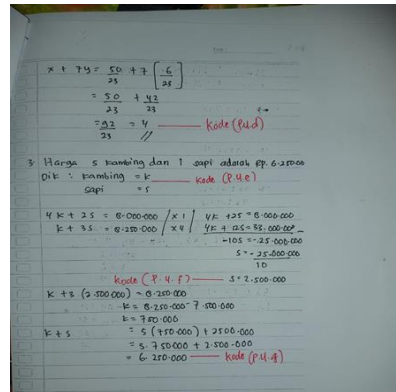 x + 7y = 50/23 + 7 [6/23]
= 50/23 + 42/23
= 92/23 = 4 Kode (P.4.d)
3. Harga 5 kambing dan 1 sapi adalah Rp. 6.250.00
Dik : kambing = k Kode (P.4.e)
sapi = s
4k + 2s = 8.000.000 | x 1 | 4k + 2s = 8.000.000
k + 3s = 8.250.000 | x 4 | 4k + 12s = 33.000.000 -
-10s = -25.000.000
s = -25.000.000
10
Kode (P.4.f) s = 2.500.000
k + 3 (2.500.000) = 8.250.000
k = 8.250.000 - 7.500.000
k = 750.000
k + s = 5 (750.000) + 2.500.000
= 3.750.000 + 2.500.000
= 6.250.000 Kode (P.4.g)